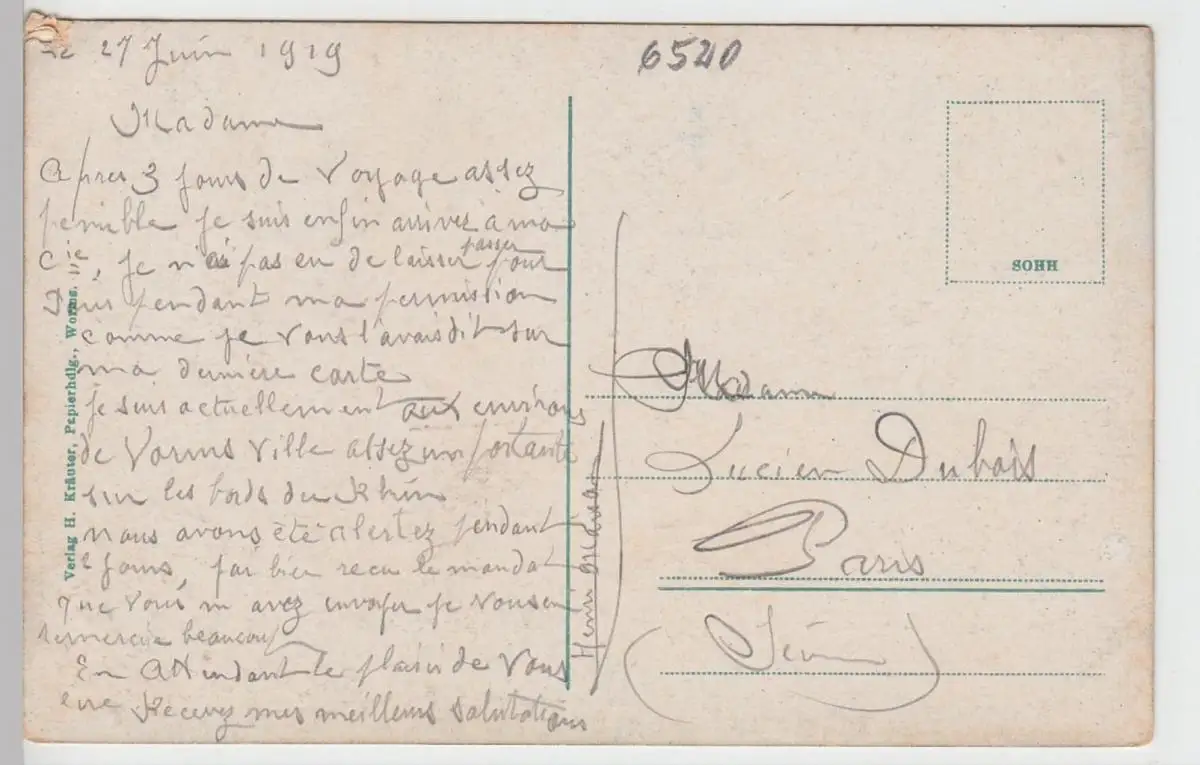 Le 27 Juin 1919
6540
Madame
Apres 3 jours de Voyage assez
penible je suis enfin arrivez a ma
Cie, Je n'ai pas eu de laisser passer pour
Vous pendant ma permission
comme je Vous l'avais dit sur
ma dernière carte
Je suis actuellement aux environs
de Vorms Ville assez importante
sur les bords du Rhin
nous avons été alertez pendant
jours, j'ai bien recu le mandat
que Vous m avez envoyer je Vous en
remercie beaucoup
En Attendant le plaisir de Vous
lire Recevez mes meilleurs salutations
Henri
Verlag H. Kräuter, Papierhdlg., Worms.
SOHH
Madame
Lucien Dubois
Paris
(Seine)